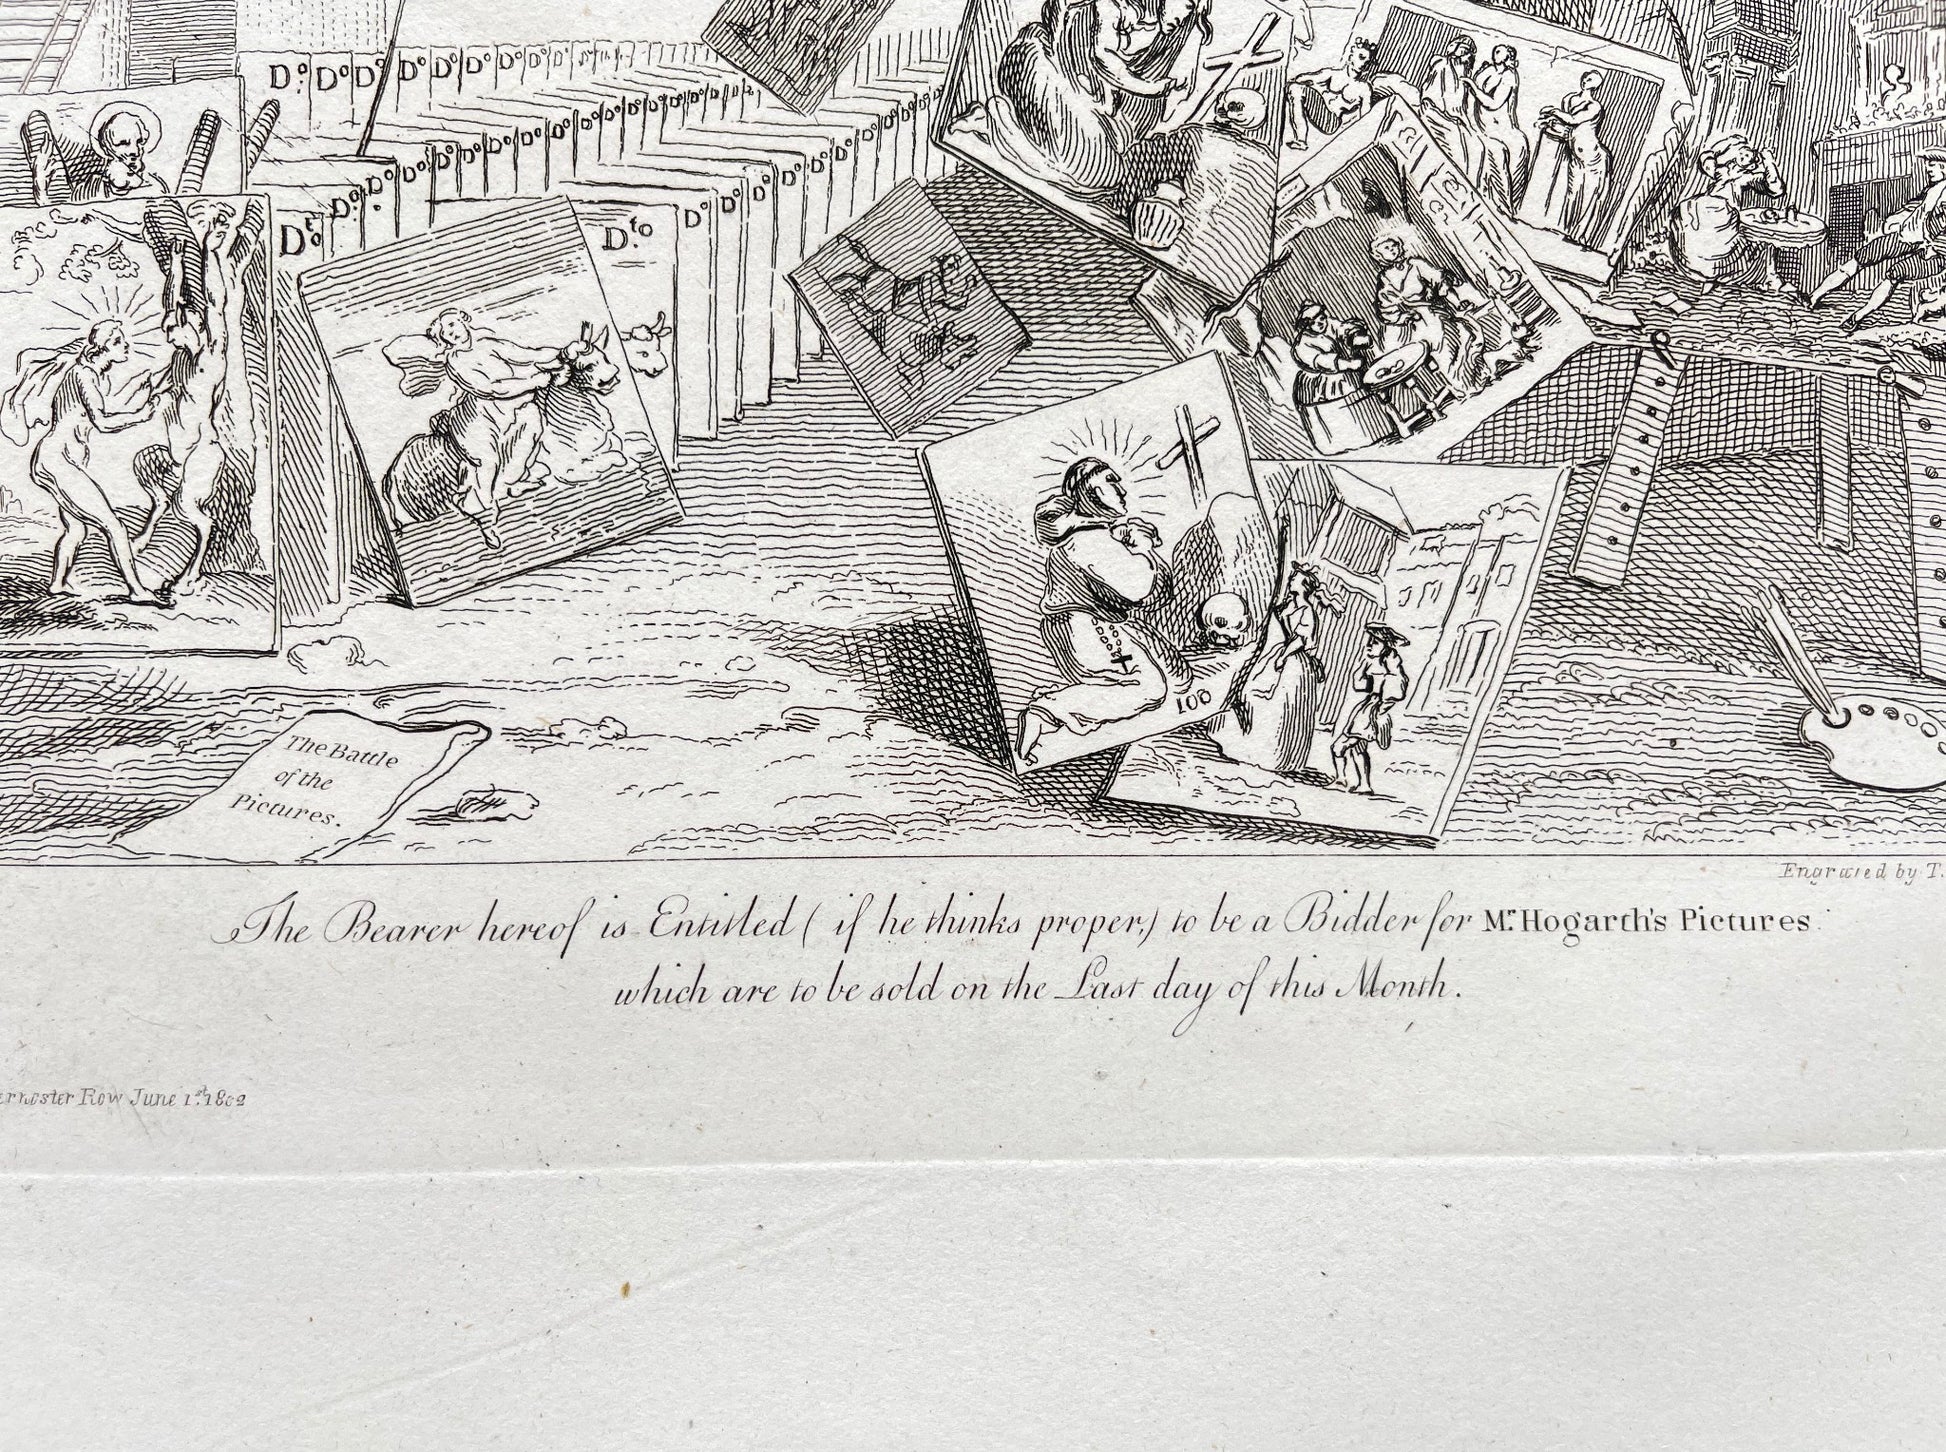 Do Do Do Do Do Do Do Do Do
Do Do Do Do Do Do Do Do Do Do Do
Dto
Dto Do Do Do Do Do Do Do Do
100
The Battle
of the
Pictures.
Engraved by T.
The Bearer hereof is Entitled ( if he thinks proper,) to be a Bidder for Mr. Hogarth's Pictures
which are to be sold on the Last day of this Month.
ernoster Row June 1st. 1802